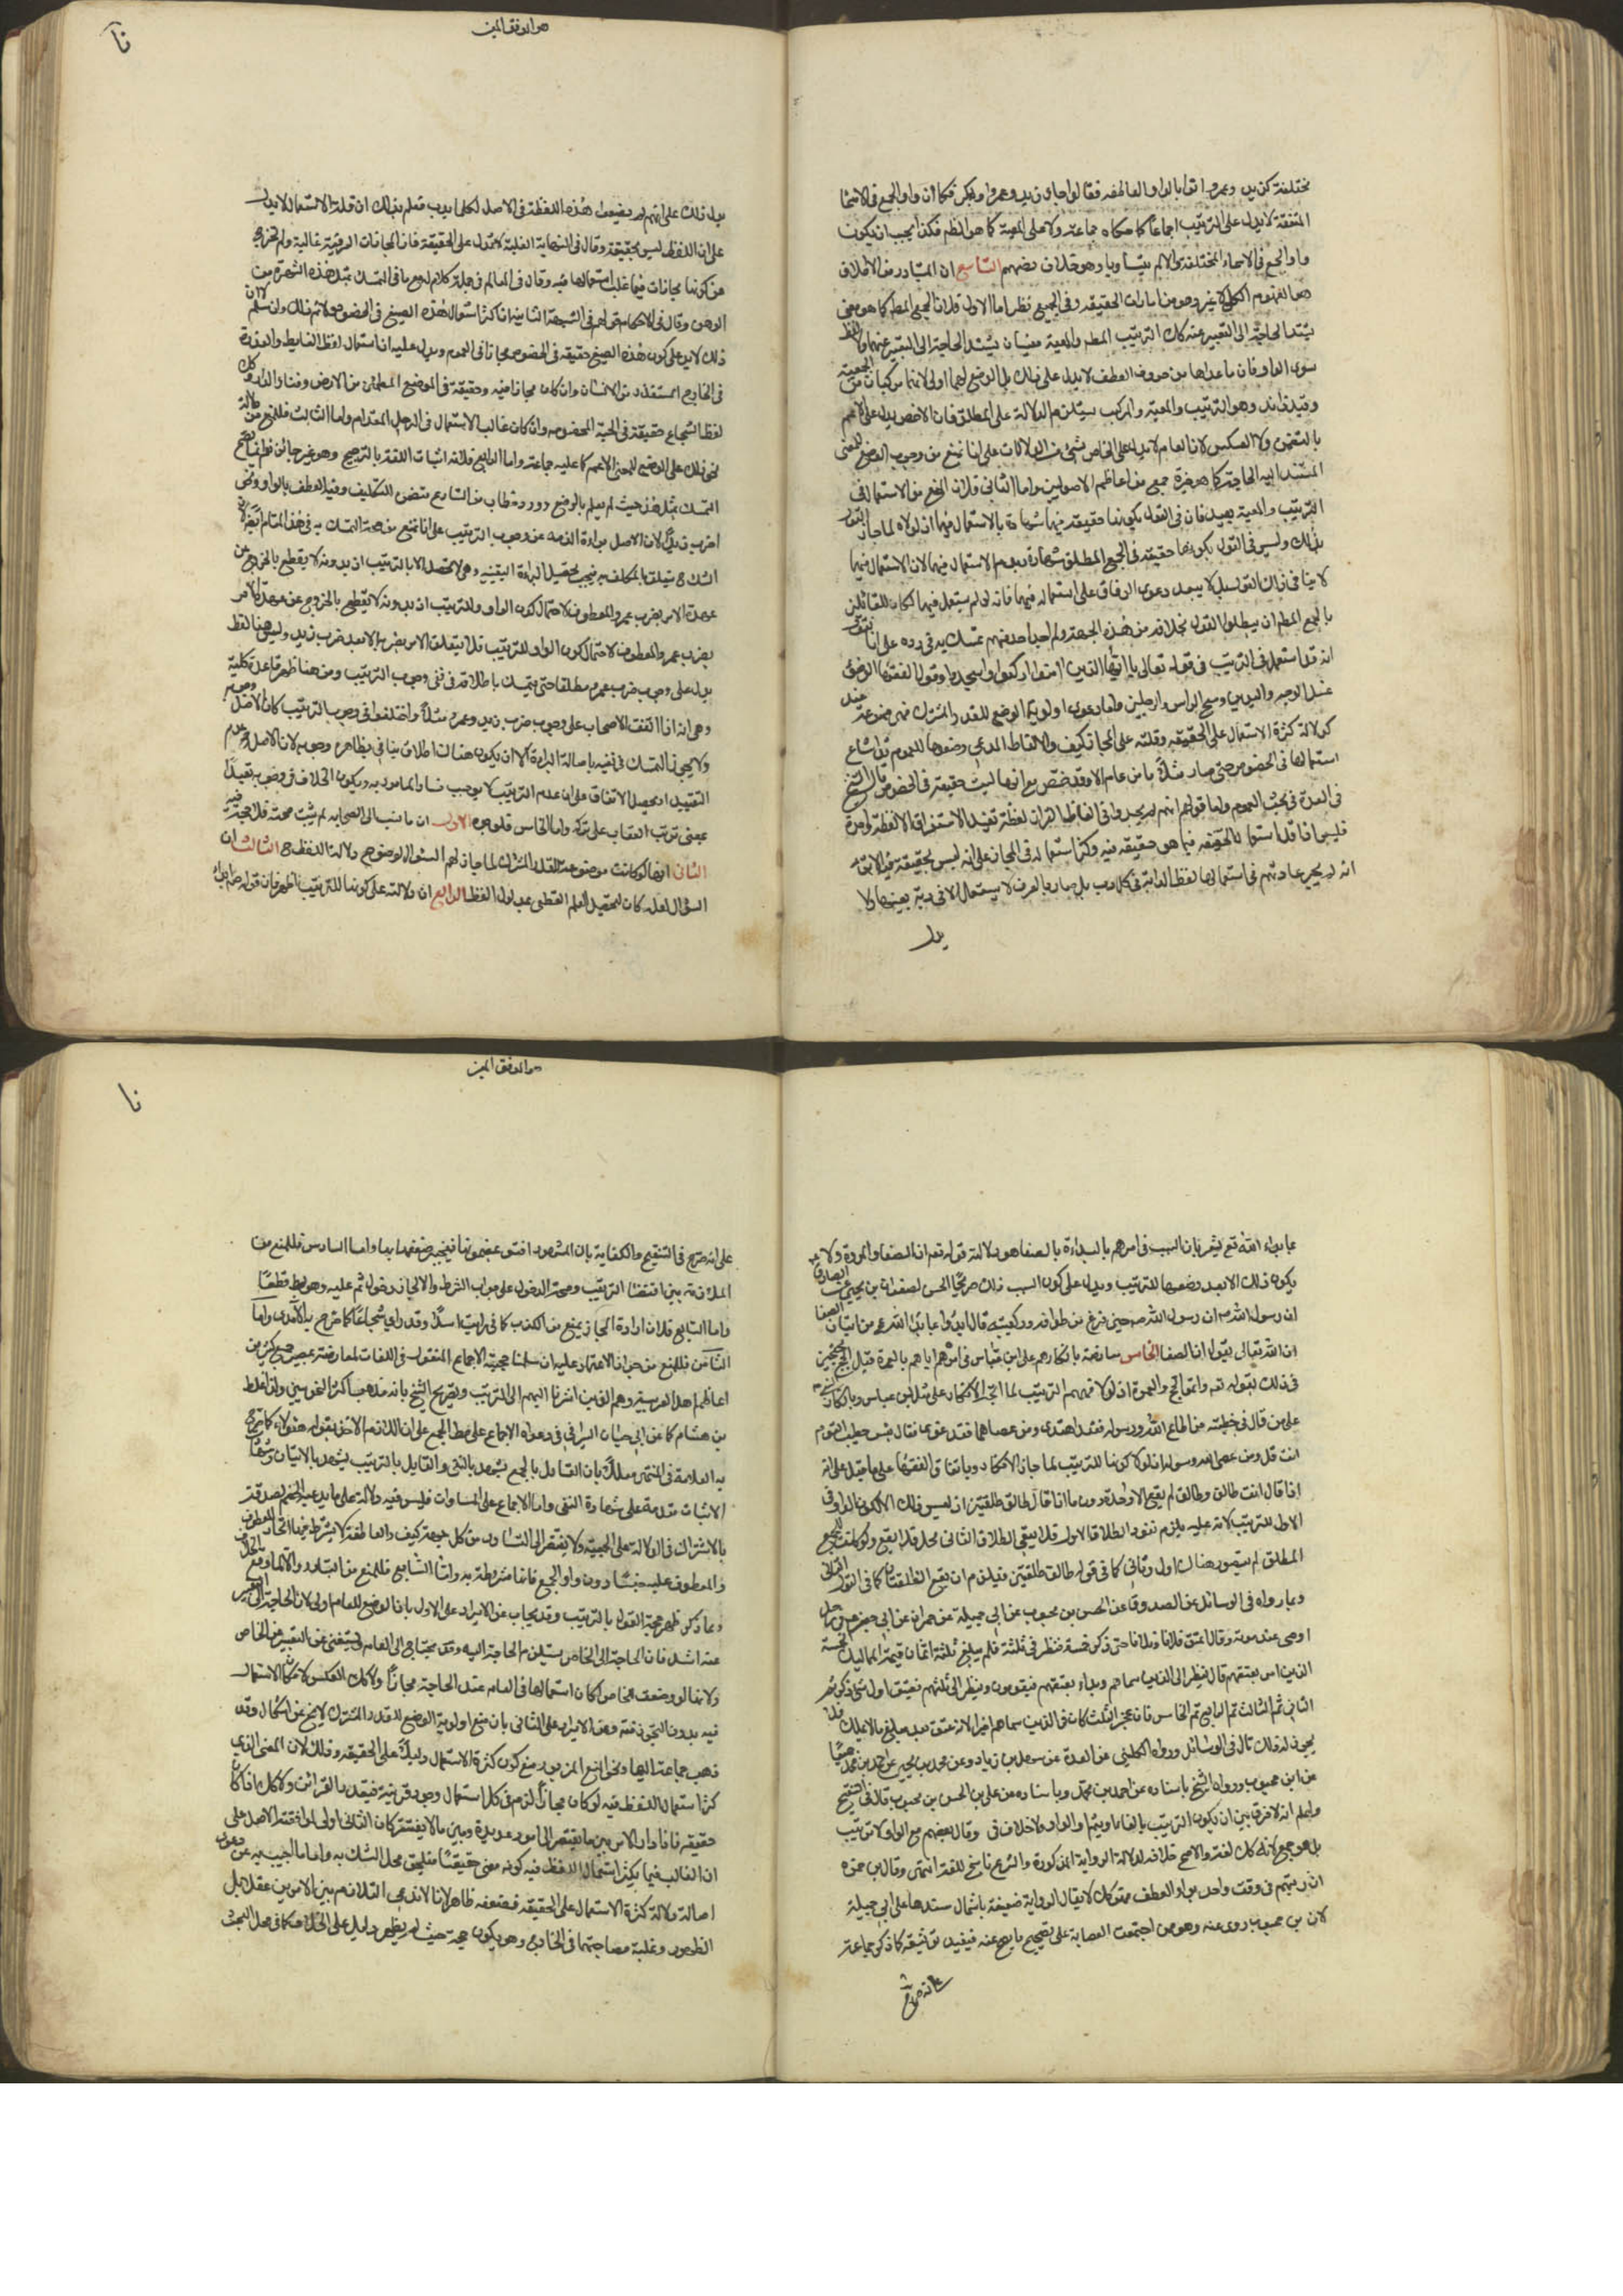 مختلفة كزيد وعمرو اتوا بالواو العاطفه فقالوا جاء زيد وعمرو وبكر فكما ان واو الجمع فى الاسماء
المتفقة لا يدل على الترتيب اجماعا كما حكاه جماعة ولا على المعية كما هو الظم فكذا يجب ان يكون
واو الجمع فى الاسماء المختلفة والا لم يتساويا وهو خلاف نصهم التاسع ان المتبادر من الاطلاق
هو المفهوم الكلى لا غير وهو من امارات الحقيقه وفى الجميع نظر اما الاول فلان الجمع المطم كما هو معنى
يشتد الحاجة الى التعبير عنه كك الترتيب المطم والمعية معنيان يشتد الحاجة الى التعبير عنهما ولا لفظ
سوى الواو فان ما عداها من حروف العطف لا يدل على ذلك بل الوضع لهما اولى لانهما مركبان من الجمعية
وقيد زايد وهو الترتيب والمعية والمركب يستلزم الدلالة على المطلق فان الاخص يدل على الاعم
بالتضمن ولا العكس لان العام لا يدل على الخاص بشئ من الدلالات على انا نمنع من وجوب الوضع للمعنى
المشتد اليه الحاجة كما هو خيرة جمع من اعاظم الاصوليين واما الثانى فلان المنع من الاستعمال فى
الترتيب والمعية بعيد فان فى القول بكونها حقيقه فيها شهادة بالاستعمال فيها اذ لولاه لما جاز القول
بذلك وليس فى القول بكونها حقيقه فى الجمع المطلق شهادة بعدم الاستعمال فيها لان الاستعمال فيها
لا ينافى ذلك القول بل لا يبعد دعوى الوفاق على استعماله فيها فانه لو لم يستعمل فيها لكان للقائلين
بالجمع المطم ان يبطلوا القول بخلافه من هذه الجهة ولم اجد احد منهم تمسك به فى رده على انا نقول
انه قد استعمل فى الترتيب فى قوله تعالى يا ايها الذين امنوا اركعوا واسجدوا وقول الفقهاء الوضوء
غسل الوجه واليدين ومسح الراس والرجلين واما دعوى اولوية الوضع للقدر المشترك فهى ممنوعة عند
كدلالة كثرة الاستعمال على الحقيقه وقلته على المجاز كيف والالفاظ المدعى وضعها للعموم قد شاع
استعمالها فى الخصوص حتى صار مثلا ما من عام الا وقد خص مع انها ليست حقيقة فى الخصوص قال الشيخ
فى العدة فى بحث العموم واما قولهم انهم لم يجدوا فى الفاظ القران لفظة تفيد الاستغراق الا لفظة واحدة
فليس اذا قل استعمال اللفظه فيما هو حقيقه فيه وكثر استعماله فى المجاز على انه ليس بحقيقة فيه الا ترى
انه لم يجر عادتهم فى استعمالها لفظ الدابة فى كل ما يدب بل صار بالعرف لا يستعمل الا فى دابة بعينها ولا
يدل
هو الموفق المعين
يدل ذلك على انهم لم يضعوا هذه اللفظة فى الاصل لكل ما يدب فعلم بذلك ان قلة الاستعمال لا يدل
على ان اللفظ ليس بحقيقة وقال فى النهاية الغلبة لا تدل على الحقيقة فان المجازات العرفية غالبة ولم تخرج
عن كونها مجازات فيما غلب استعمالها فيه وقال فى المعالم فى جملة كلام له مع ما فى التمسك بمثل هذه الشهرة من
الوهن وقال فى الاحكام قولهم فى الشبهة الثانية ان كثر استعمال هذه الصيغ فى الخصوص لا نم ذلك وان سلم
ذلك لا يدل على كون هذه الصيغ حقيقه فى الخصوص مجازا فى العموم ويدل عليه ان استعمال لفظ الغايط والعذرة
فى الخارج المستقذر من الانسان وان كان مجازا فيه وحقيقة فى الموضع المطمئن من الارض وفناء الدار وكك
لفظ الشجاع حقيقة فى الحية المخصوصه وان كان غالب الاستعمال فى الرجل المقدام واما الثالث فللمنع من دلالة
نحو ذلك على الوضع للمعنى الاعم كما عليه جماعة واما الرابع فلانه اثبات اللغة بالترجيح وهو غير جائز نعم يصح
التمسك بمثل هذا حيث لم يعلم بالوضع وورد خطاب من الشارع متضمن التكليف وقيد العطف بالواو وهى
اضرب زيدا لان الاصل براءة الذمه عن وجوب الترتيب على انا نمنع من صحة التمسك به فى هذا المقام لان
الشك فى متعلق المكلف به فيجب تحصيل البراءة اليقينيه وهى لا تحصل الا بالترتيب اذ بدونه لا يقطع بالخروج عن
عهدة الامر بضرب عمرو المعطوف لاحتمال كون الواو للترتيب اذ بدونه لا يقطع بالخروج عن عهدة الامر
بضرب عمرو المعطوف لاحتمال كون الواو للترتيب فلا يتعلق الامر بضربه الا بعد ضرب زيد وليس هنا لفظ
يدل على وجوب ضرب عمرو مطلقا حتى يتمسك باطلاقه فى نفى وجوب الترتيب ومن هنا ظهر قاعدة كلية
وهى انه اذا اتفقت الاصحاب على وجوب ضرب زيد وعمرو مثلا واختلفوا فى وجوب الترتيب كان الاصل وجوبه
ولا يجوز التمسك فى نفيه باصالة البراءة الا ان يكون هناك اطلاق ينافى بظاهره وجوبه لان الاصل عدم
التقييد او يحصل الاتفاق على ان عدم الترتيب لا يوجب فساد المامور به ويكون الخلاف فى وجوبه تعبدا
بمعنى ترتب العقاب على تركه واما الخامس فلوجوه الاول ان ما نسب الى الصحابه لم يثبت صحته فلا حجة فيه
الثانى انها لو كانت موضوعة للقدر المشترك لما جاز لهم السؤال لوضوح دلالة اللفظ ح الثالث ان
السؤال لعله كان لتحصيل العلم القطعى بمدلول اللفظ الرابع ان دلالته على كونها للترتيب اظهر فان قوله ص ابدؤا
بما بدء الله تع يشعر بان السبب فى امرهم بالبداءة بالصفا هو دلالة قوله تعم ان الصفا والمروة ولا
يكون ذلك الا بعد وضعها للترتيب ويدل على كون السبب ذلك صريحا الحسن لصفوان بن يحيى عن الصادق
ان رسول الله ص حين فرغ من طوافه وركعتيه قال ابدؤا بما بدا الله عز وجل من اتيان الصفا
ان الله تعالى يقول ان الصفا الخامس معارضة بانكارهم على ابن عباس فى امرهم اياهم بالعمرة قبل الحج محتجين
فى ذلك بقوله تعم واتموا الحج والعمرة اذ لولا فهمهم الترتيب لما اتجه الانكار على مثل ابن عباس وبانكاره ص
على من قال فى خطبته من اطاع الله ورسوله فقد اهتدى ومن عصاهما فقد غوى فقال بئس خطيب القوم
انت قل ومن عصى الله ورسوله اذ لولا كونها للترتيب لما جاز الانكار وباتفاق الفقهاء على ما قيل على انه
اذا قال انت طالق وطالق لم يقع الا واحدة دون ما اذا قال طالق طلقتين اذ ليس ذلك الا لكون الواو فى
الاول للترتيب لانه عليه يلزم نفوذ الطلاق الاول فلا يبقى للطلاق الثانى محل فلا يقع ولو كانت للجمع
المطلق لم يتصور هناك اول وثانى كما فى قوله طالق طلقتين فيلزم ان يقع الطلقتان كما فى القول الثانى
وبما رواه فى الوسائل عن الصدوق عن الحسن بن محبوب عن ابى جميلة عن حمران عن ابى جعفر ع فى رجل
اوصى عند موته وقال اعتق فلانا وفلانا حتى ذكر خمسة فنظر فى ثلثه فلم يبلغ ثلثه اثمان قيمة المماليك الخمسة
الذين امر بعتقهم قال ينظر الى الذين سماهم وبدء بعتقهم فيقومون وينظر الى ثلثهم فيعتق اول شئ ذكر ثم
الثانى ثم الثالث ثم الرابع ثم الخامس فان عجز الثلث كان فى الذين سماهم اخيرا لانه عتق بعد مبلغ ما لا يملك فلا
يجوز له ذلك قال فى الوسائل ورواه الكلينى عن العدة عن سهل بن زياد وعن محمد بن يحيى عن احمد بن محمد جميعا
عن ابن محبوب ورواه الشيخ باسناده عن احمد بن محمد وباسناده عن على بن الحسن بن محبوب قال فى التنقيح
واعلم انه لا فرق بين ان يكون الترتيب بالفاء او بثم او الواو بلا خلاف فى وقال بعضهم مع الواو لا ترتيب
بل هو جمع لانه كك لغة والاصح خلافه لدلالة الرواية المذكورة والشرع ناسخ للغة انتهى وقال بن حمزه
ان رتبهم فى وقت واحد بواو العطف فهو كك لا يقال الرواية ضعيفة باشتمال سندها على ابى جميلة
لان بن محبوب روى عنه وهو من اجتمعت العصابة على تصحيح ما يصح عنه فيفيد توثيقه كما ذكر جماعة
هو الموفق المعين
على انه صرح فى التنقيح والكفاية بان المشهور افتوا بمضمونها فينجبر ضعفها بها واما السادس فللمنع من
الملازمة بين اقتضاء الترتيب وصحة الدخول على جواب الشرط والا لجاز دخول ثم عليه وهو بط قطعا
واما السابع فلان ارادة المجاز يمنع من الكذب كما فى رايت اسدا وقد راى شجاعا كما صرح به الآمدى واما
الثامن فللمنع من جواز الاعتماد عليه ان سلمنا حجية الاجماع المنقول فى اللغات لمعارضته بمصير جمع كثير من
اعاظم اهل العربية وهم الذين اشرنا اليهم الى الترتيب وتصريح الشيخ بانه مذهب اكثر النحويين ولذا غلط
بن هشام كما عن ابى حيان السيرافى فى دعواه الاجماع على مط الجمع على ان اللازم الاخذ بقول هؤلاء كما صرح
به العلامة فى المنتهى معللا بان القائل بالجمع يشهد بالنفى والقايل بالترتيب يشهد بالاثبات وشهادة
الاثبات مقدمة على شهادة النفى واما الاجماع على المساوات فليس فيه دلالة على ما يدعيه الخصم لصدقه
بالاشتراك فى الدلالة على الجمعية ولا يفتقر الى التساوى من كل جهة كيف والعاطفة لا يشترط فيها اتحاد المعطوف
والمعطوف عليه جنسا دون واو الجمع فانها مشروطة به واما التاسع فللمنع من التبادر والا لما وقع الخلاف
وبما ذكر ظهر حجة القول بالترتيب وقد يجاب عن الايراد على الاول بان الوضع للعام اولى لان الحاجة الى التعبير
عنه اشد فان الحاجة الى الخاص يستلزم الحاجة اليه وقد يحتاج الى العام ويستغنى عن التعبير عن الخاص
ولانها لو وضعت للخاص لكان استعمالها فى العام عند الحاجة مجازا ولا كك العكس لامكان الاستعمال
فيه بدون التجوز فتم وعن الايراد على الثانى بان منع اولوية الوضع للقدر المشترك لا يخ عن اشكال وقد
ذهب جماعة اليها ونحو المنع المزبور منع كون كثرة الاستعمال دليلا على الحقيقه وذلك لان المعنى الذى
كثر استعمال اللفظ فيه لو كان مجازا لزم فى كل استعمال وجود قرينة فيتعدد القرائن ولا كك اذا كان
حقيقه فاذا دار الامر بين ما يفتقر الى امور عديدة وبين ما لا يفتقر كان الثانى اولى لموافقته الاصل على
ان الغالب فيما يكثر استعمال اللفظ فيه كونه معنى حقيقيا فيلحق محل الشك به واما ما اجيب به عن دعوى
اصالة دلالة كثرة الاستعمال على الحقيقه فضعفه ظاهر لانا لا ندعى التلازم بين الامرين عقلا بل
الظهور وغلبة مصاحبتهما فى الخارج وهو يكون حجة حيث لم يظهر دليل على الخلاف كما فى محل البحث